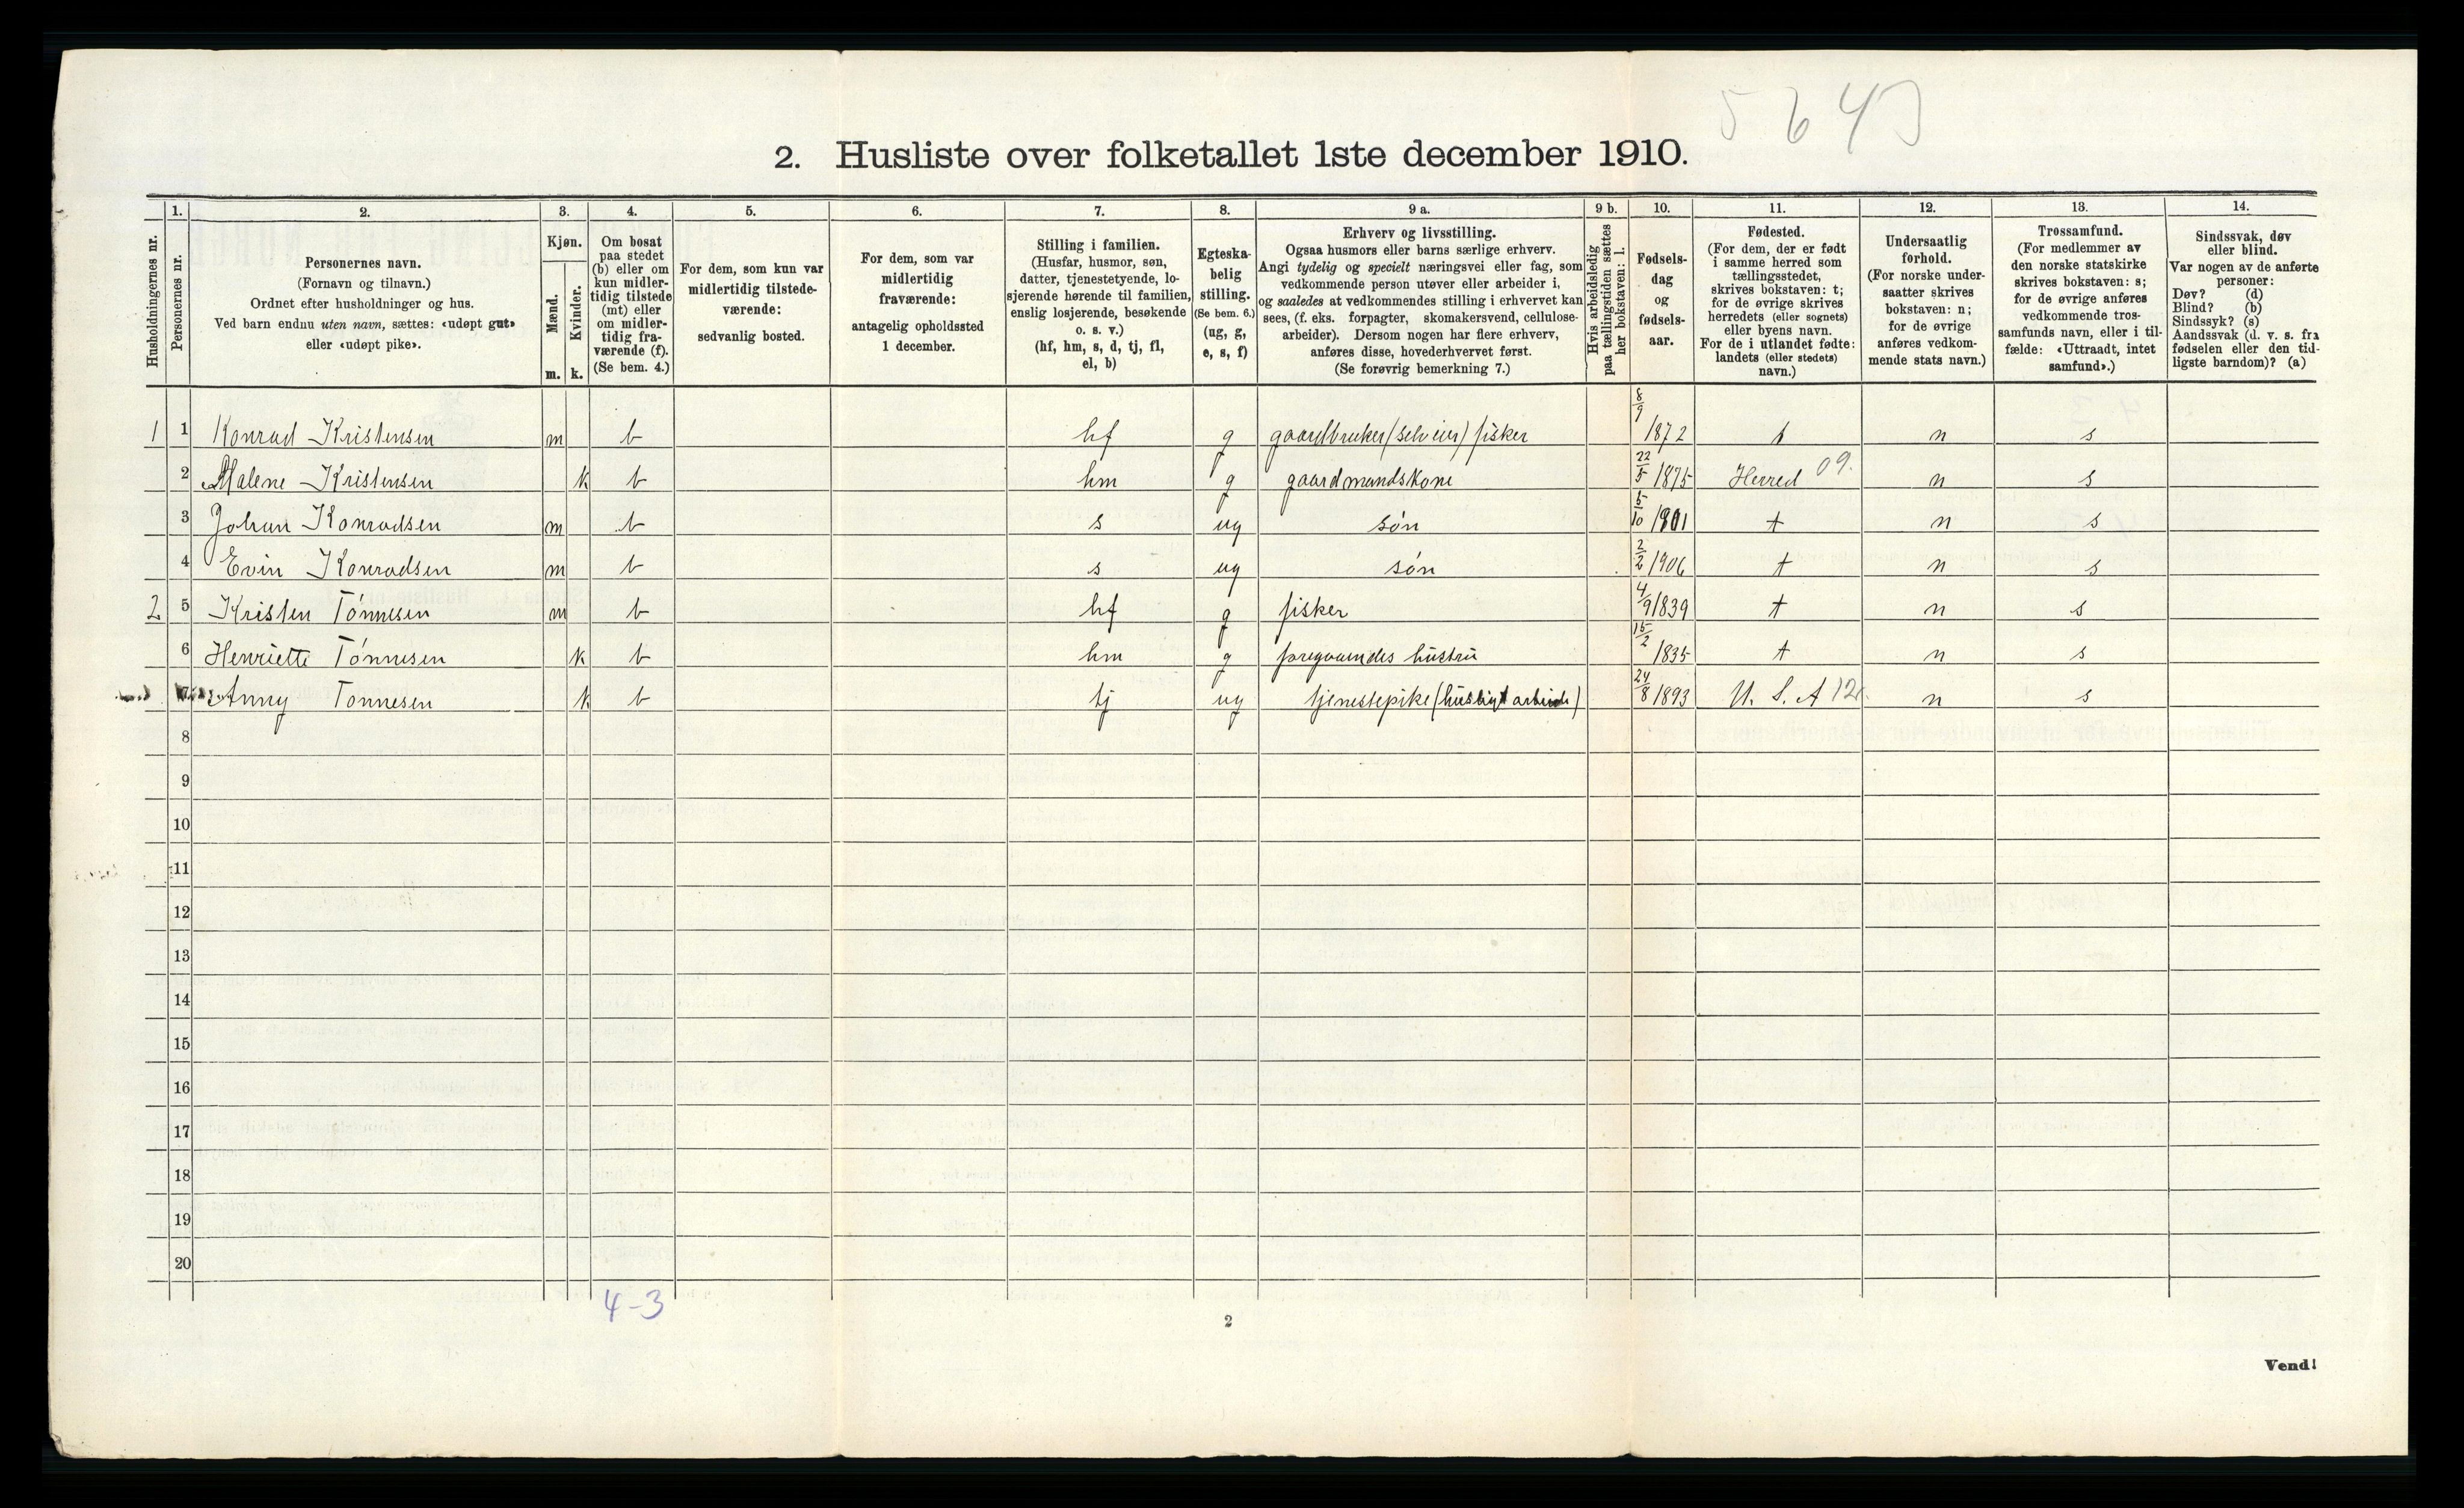 5643
2. Husliste over folketallet 1ste december 1910.
Husholdningernes nr.
1. Personernes nr.
2. Personernes navn.
(Fornavn og tilnavn.)
Ordnet efter husholdninger og hus.
Ved barn endnu uten navn, sættes: «udøpt gut»
eller «udøpt pike».
3. Kjøn.
Mænd. m.
Kvinder. k.
4. Om bosat
paa stedet
(b) eller om
kun midler-
tidig tilstede
(mt) eller
om midler-
tidig fra-
værende (f).
(Se bem. 4.)
5. For dem, som kun var
midlertidig tilstede-
værende:
sedvanlig bosted.
6. For dem, som var
midlertidig
fraværende:
antagelig opholdssted
1 december.
7. Stilling i familien.
(Husfar, husmor, søn,
datter, tjenestetyende, lo-
sjerende hørende til familien,
enslig losjerende, besøkende
o. s. v.)
(hf, hm, s, d, tj, fl,
el, b)
8. Egteska-
belig
stilling.
(Se bem. 6.)
(ug, g,
e, s, f)
9 a. Erhverv og livsstilling.
Ogsaa husmors eller barns særlige erhverv.
Angi tydelig og specielt næringsvei eller fag, som
vedkommende person utøver eller arbeider i,
og saaledes at vedkommendes stilling i erhvervet kan
sees, (f. eks. forpagter, skomakersvend, cellulose-
arbeider). Dersom nogen har flere erhverv,
anføres disse, hovederhvervet først.
(Se forøvrig bemerkning 7.)
9 b. Hvis arbeidsledig
paa tællingstiden sættes
her bokstaven: l.
10. Fødsels-
dag
og
fødsels-
aar.
11. Fødested.
(For dem, der er født
i samme herred som
tællingsstedet,
skrives bokstaven: t;
for de øvrige skrives
herredets (eller sognets)
eller byens navn.
For de i utlandet fødte:
landets (eller stedets)
navn.)
12. Undersaatlig
forhold.
(For norske under-
saatter skrives
bokstaven: n;
for de øvrige
anføres vedkom-
mende stats navn.)
13. Trossamfund.
(For medlemmer av
den norske statskirke
skrives bokstaven: s;
for de øvrige anføres
vedkommende tros-
samfunds navn, eller i til-
fælde: «Uttraadt, intet
samfund».)
14. Sindssvak, døv
eller blind.
Var nogen av de anførte
personer:
Døv? (d)
Blind? (b)
Sindssyk? (s)
Aandssvak (d. v. s. fra
fødselen eller den tid-
ligste barndom)? (a)
1 1 Konrad Kristensen m b hf g gaardbruker (selveier) fisker 8/9 1872 t n s
2 Malene Kristensen k b hm g gaardmandskone 22/5 1875 Herred 09. n s
3 Johan Konradsen m b s ug søn 5/10 1901 t n s
4 Evin Konradsen m b s ug søn 2/2 1906 t n s
2 5 Kristen Tønnesen m b hf g fisker 4/9 1839 t n s
6 Henriette Tønnesen k b hm g foregaaendes hustru 15/2 1835 t n s
7 Anny Tønnesen k b tj ug tjenestepike (husligt arbeide) 24/8 1893 U. S. A 12. n s
8
9
10
11
12
13
14
15
16
17
18
19
20
4-3
2
Vend!